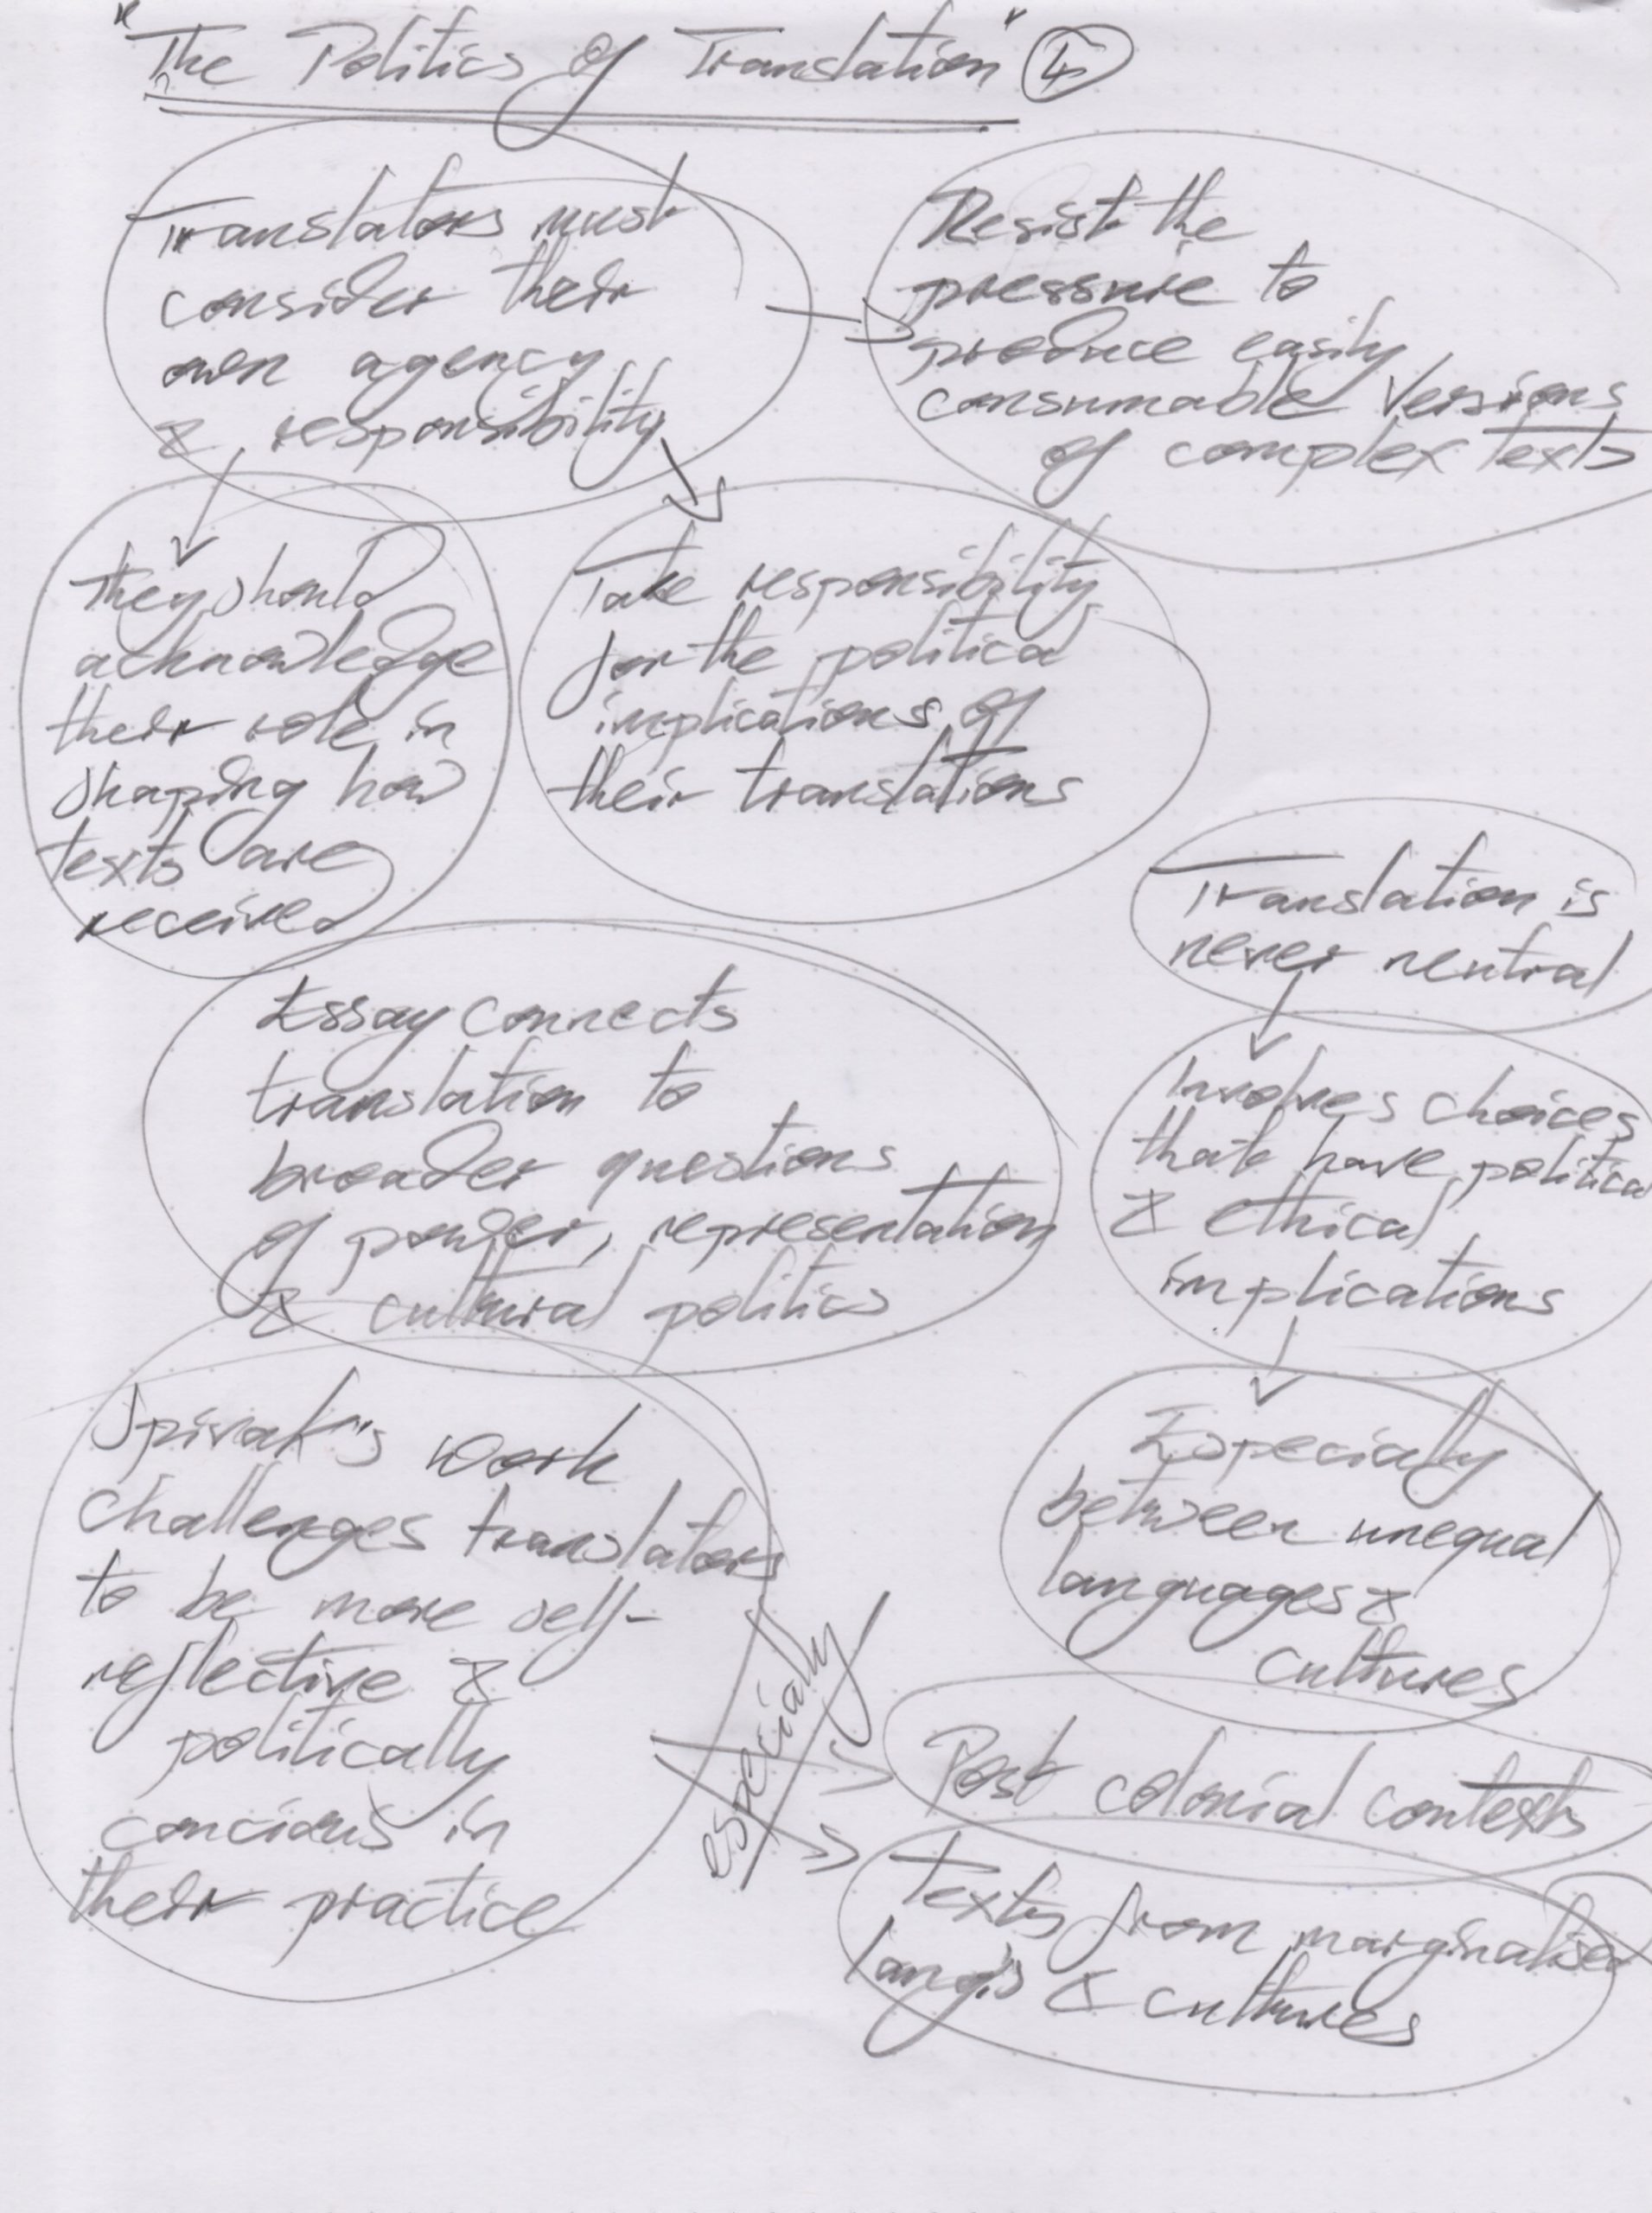 "The Politics of Translation" 4
Translators must
consider their
own agency
& responsibility
Resist the
pressure to
produce easily
consumable versions
of complex texts
They should
acknowledge
their role in
shaping how
texts are
received
Take responsibility
for the political
implications of
their translations
Translation is
never neutral
Involves choices
that have political
& ethical
implications
Especially
between unequal
languages &
cultures
Essay connects
translation to
broader questions
of power, representation
& cultural politics
Spivak's work
challenges translators
to be more self-
reflective &
politically
concious in
their practice
especially
Post colonial contexts
Texts from marginalised
lang's & cultures